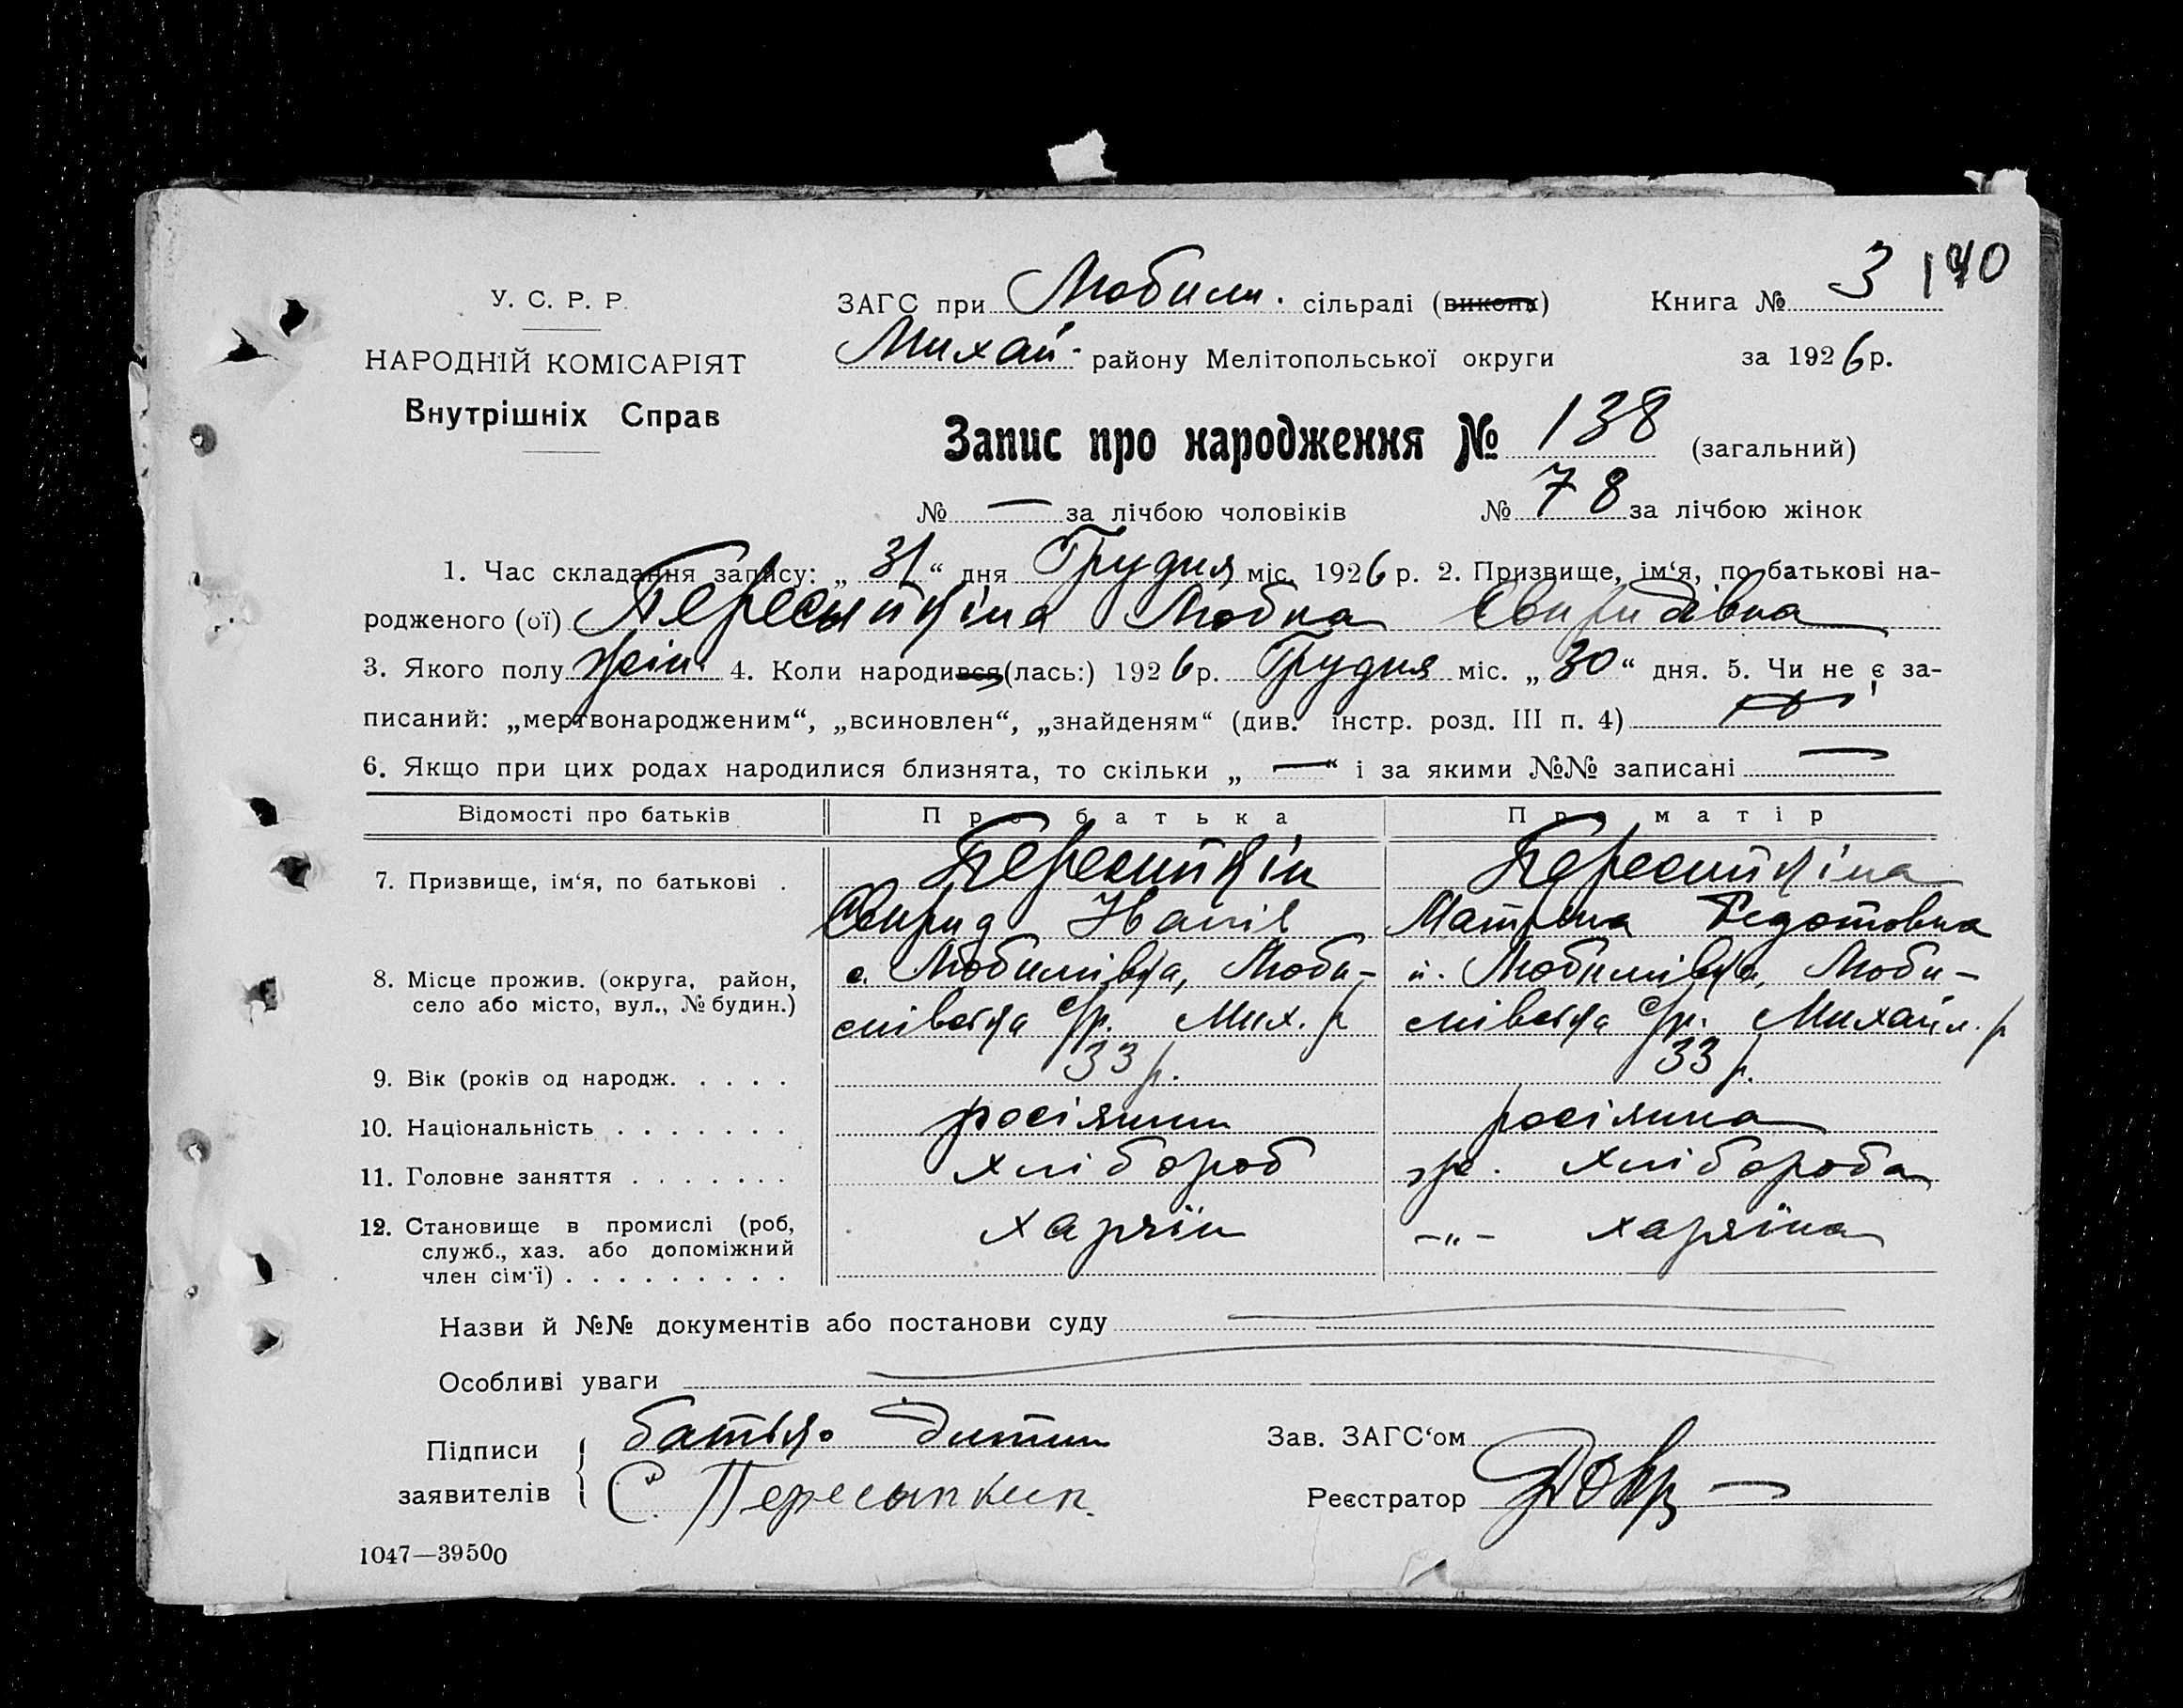 3 140
У. С. Р. Р. ЗАГС при Любим. сільраді (виконк) Книга №
НАРОДНІЙ КОМІСАРІЯТ Михай- району Мелітопольської округи за 1926 р.
Внутрішніх Справ
Запис про народження № 138 (загальний)
№ — за лічбою чоловіків № 78 за лічбою жінок
1. Час складання запису: „ 31 “ дня Грудня міс. 1926 р. 2. Призвище, ім‘я, по батькові на-
родженого (ої) Пересыпкіна Любка Свиридівна
3. Якого полу жін. 4. Коли народився (лась:) 1926 р. Грудня міс. „ 30 “ дня. 5. Чи не є за-
писаний: „мертвонародженим“, „всиновлен“, „знайденям“ (див. інстр. розд. III п. 4)
6. Якщо при цих родах народилися близнята, то скільки „ — “ і за якими №№ записані —
Відомості про батьків Про батька Про матір
7. Призвище, ім‘я, по батькові . Пересипкін Пересипкіна
Свирид Іванів Матрьна Федотовна
8. Місце прожив. (округа, район, с. Любимівка, Люби- Любимівка, Люби-
село або місто, вул., № будин.) мівська с/р. Мих. р мівська с/р. Михайл. р
9. Вік (років од народж. . . . . 33 р. 33 р.
10. Національність . . . . . . . росіянин росіянка
11. Головне заняття . . . . . . . хлібороб хлібороба
12. Становище в промислі (роб, хазяїн -„- хазяїна
служб., хаз. або допоміжний
член сім‘ї) . . . . . . . . .
Назви й №№ документів або постанови суду
Особливі уваги
Підписи батько дитини Зав. ЗАГС‘ом
заявителів С. Пересыпкин. Реєстратор
1047—39500